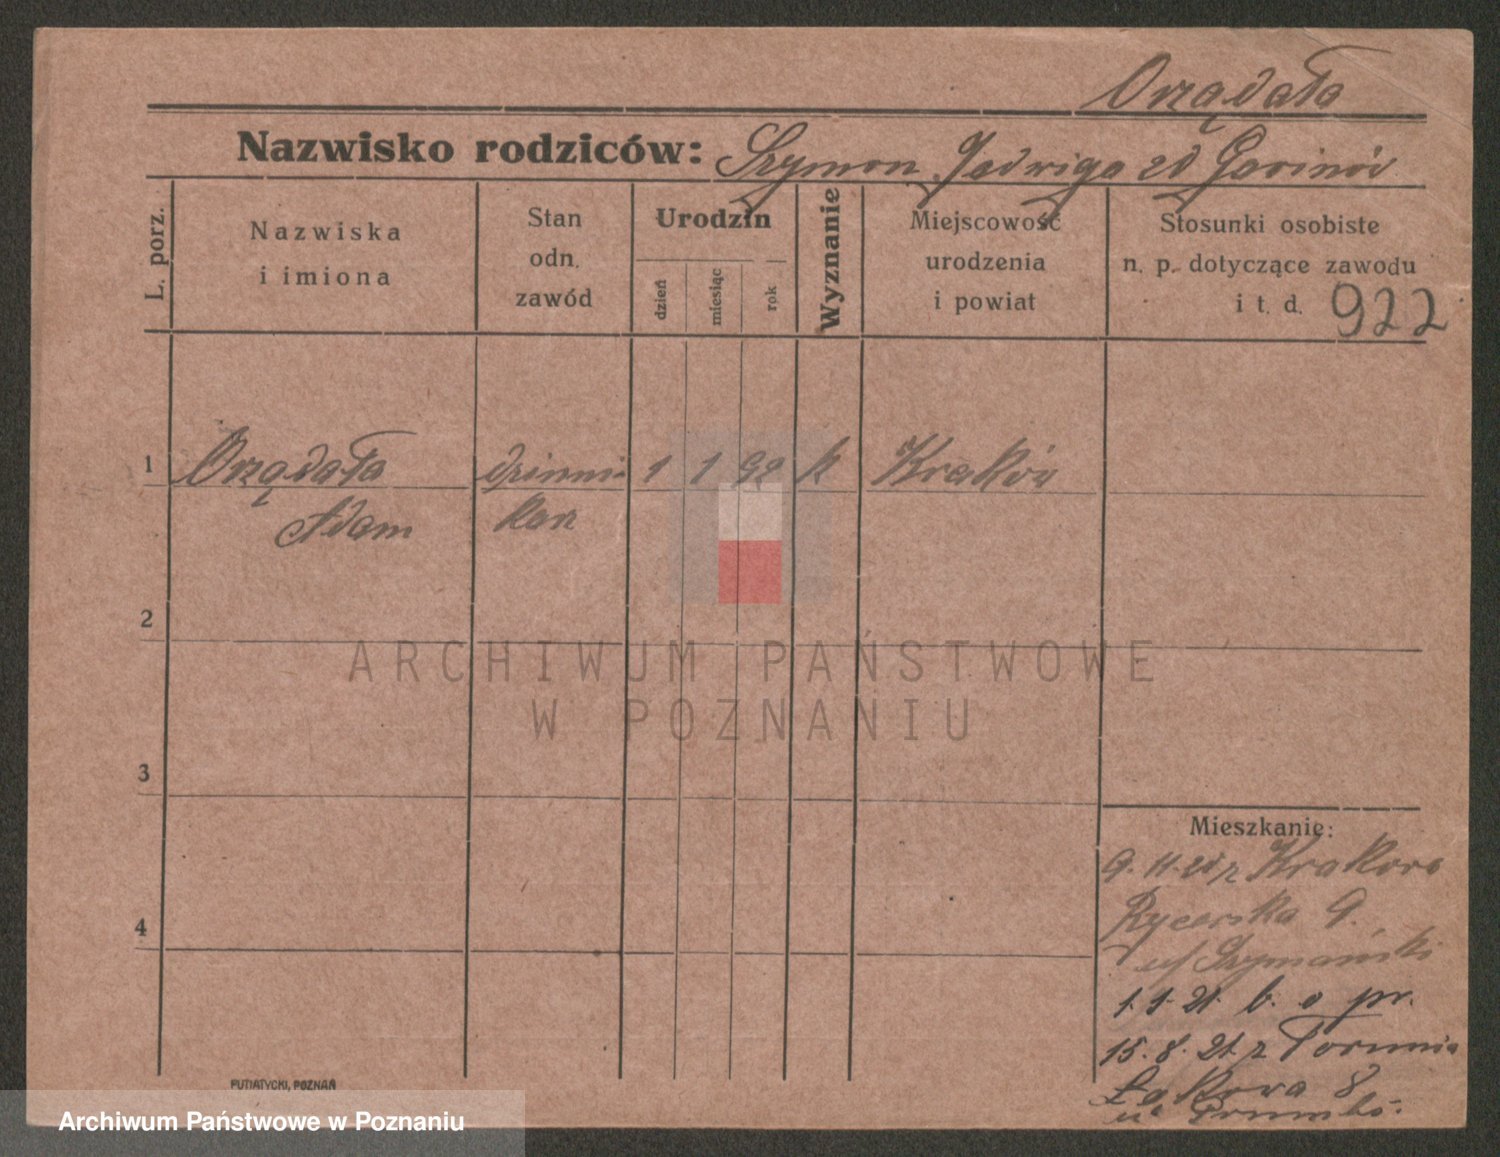 Orządała
Nazwisko rodziców: Szymon Jadwiga zd
L. porz.
Nazwiska
i imiona
Stan
odn.
zawód
Urodzin
dzień
miesiąc
rok
Wyznanie
Miejscowość
urodzenia
i powiat
Stosunki osobiste
n. p. dotyczące zawodu
i t. d. 922
1 Orządała dzienni- 1 1 92 k Kraków
Adam karz
2
3
4
ARCHIWUM PAŃSTWOWE
W POZNANIU
Mieszkanie:
9. 11. z Krakowa
Rycerska 9.
Szymański
1. 9. 21. b. o pr.
15. 8. 21 z Torunia
Łąkowa 8
PUTIATYCKI, POZNAŃ
Archiwum Państwowe w Poznaniu